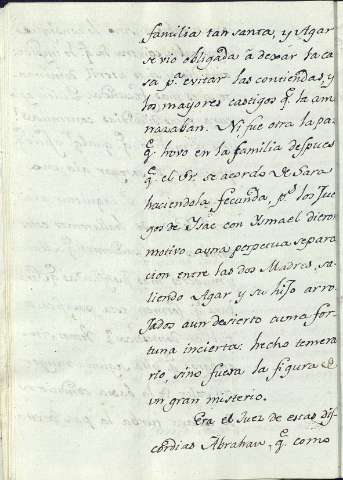 familia tan santa, y Agar
se vio obligada à dexar la ca
sa p.ª evitar las contiendas, y
los mayores castigos q.e la ame
nazaban. Ni fue otra la paz
q.e hovo en la familia despues
q.e el Sr. se acordo de Sara
haciendola fecunda, p.s los Jue
gos de Isac con Ismael dieron
motivo a una perpetua separa
cion entre las dos Madres, sa
liendo Agar y su hijo arro
jados a un desierto a una for
tuna incierta: hecho temera
rio, sino fuera la figura de
un gran misterio.
Era el Juez de estas dis
cordias Abrahan, q.e como